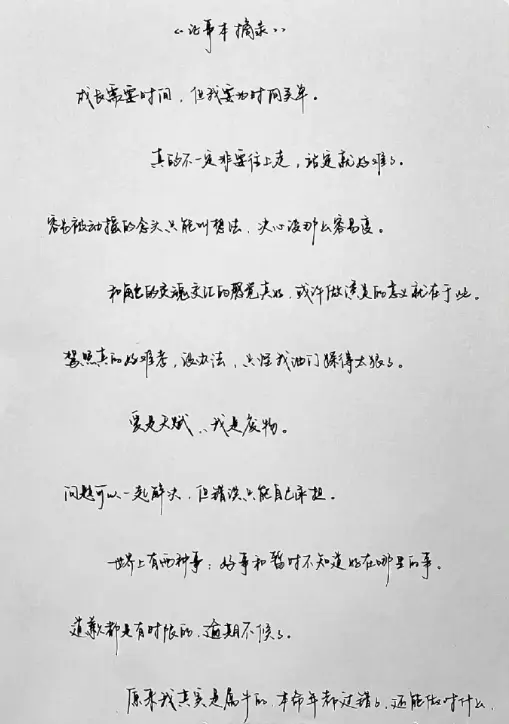 《记事本摘录》
成长需要时间，但我要为时间买单。
真的不一定非要往上走，站定就好难了。
容易被动摇的念头只能叫想法，决心没那么容易变。
和角色的灵魂交汇的感觉真好，或许做演员的意义就在于此。
驾照真的好难考，没办法，只怪我油门踩得太狠了。
爱是天赋，我是废物。
问题可以一起解决，但错误只能自己承担。
世界上有两种事：好事和暂时不知道好在哪里的事。
道歉都是有时限的，逾期不候了。
原来我其实是属牛的，本命年都过错了，还能做对什么。